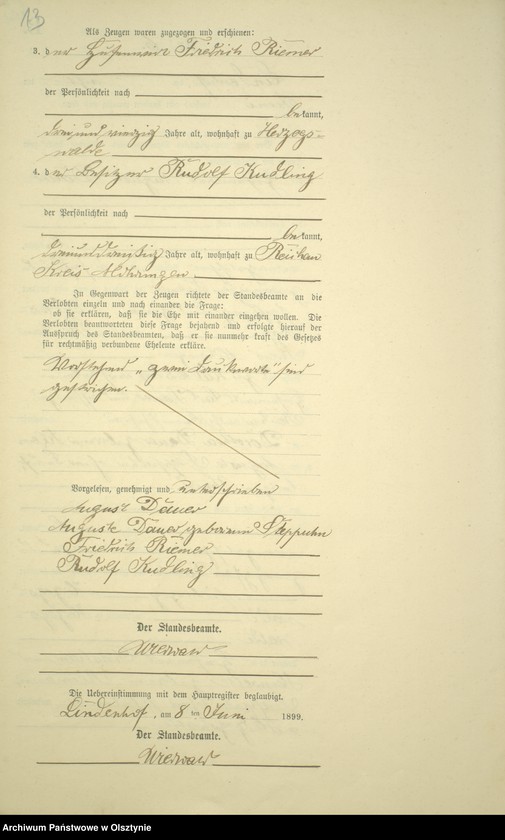 13
Als Zeugen waren zugezogen und erschienen:
3. der Hufenwirt Friedrich Riemer
der Persönlichkeit nach
bekannt,
dreiundvierzig Jahre alt, wohnhaft zu Herzogs-
walde
4. der Besitzer Rudolf Kudling
der Persönlichkeit nach
bekannt,
dreiunddreißig Jahre alt, wohnhaft zu
Kreis Mohrungen
In Gegenwart der Zeugen richtete der Standesbeamte an die
Verlobten einzeln und nach einander die Frage:
ob sie erklären, daß sie die Ehe mit einander eingehen wollen. Die
Verlobten beantworteten diese Frage bejahend und erfolgte hierauf der
Ausspruch des Standesbeamten, daß er sie nunmehr kraft des Gesetzes
für rechtmäßig verbundene Eheleute erkläre.
Vorstehend „zwei Druckworte“ sind
gestrichen.
Vorgelesen, genehmigt und unterschrieben
August Dauer
Auguste Dauer geborene
Friedrich Riemer
Rudolf Kudling
Der Standesbeamte.
Die Uebereinstimmung mit dem Hauptregister beglaubigt.
Lindenhof, am 8 ten Juni 1899.
Der Standesbeamte.
Archiwum Państwowe w Olsztynie